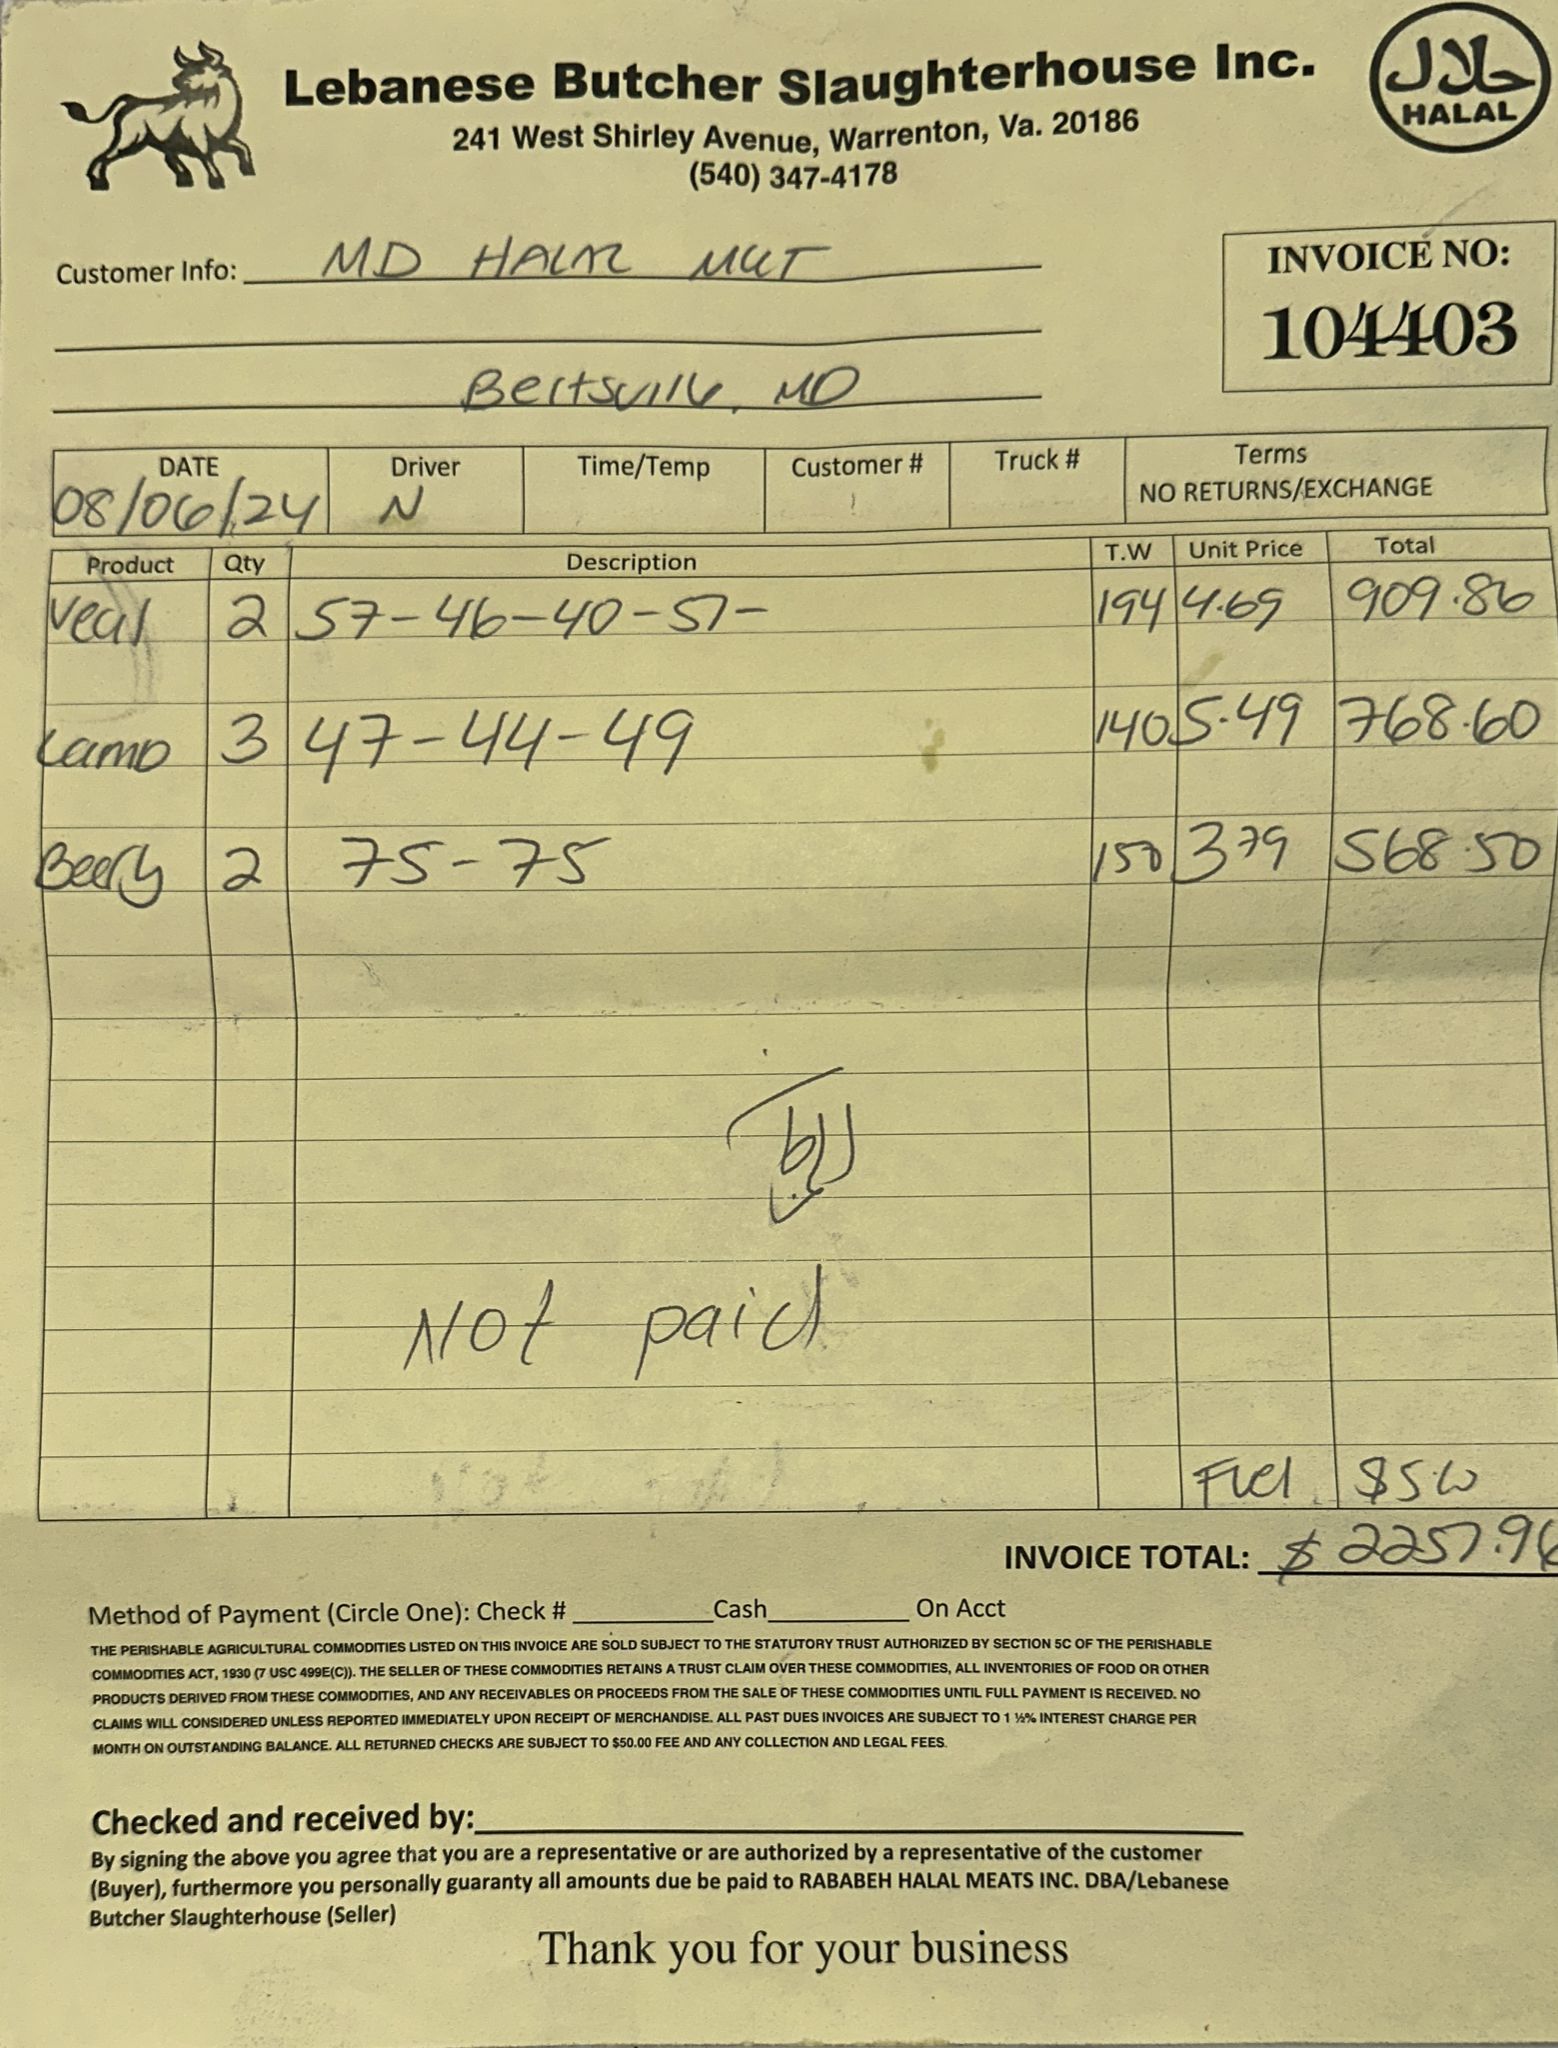 Lebanese Butcher Slaughterhouse Inc.
241 West Shirley Avenue, Warrenton, Va. 20186
(540) 347-4178
حلال
HALAL
Customer Info: MD HALAL MKT
Beltsville, MD
INVOICE NO:
104403
DATE Driver Time/Temp Customer # Truck # Terms
08/06/24 N NO RETURNS/EXCHANGE
Product Qty Description T.W Unit Price Total
Veal 2 57-46-40-51- 194 4.69 909.86
Lamb 3 47-44-49 140 5.49 768.60
2 75-75 150 3.79 568.50
Not paid
Fuel $5.00
INVOICE TOTAL: $2251.96
Method of Payment (Circle One): Check # Cash On Acct
THE PERISHABLE AGRICULTURAL COMMODITIES LISTED ON THIS INVOICE ARE SOLD SUBJECT TO THE STATUTORY TRUST AUTHORIZED BY SECTION 5C OF THE PERISHABLE
COMMODITIES ACT, 1930 (7 USC 499E(C)). THE SELLER OF THESE COMMODITIES RETAINS A TRUST CLAIM OVER THESE COMMODITIES, ALL INVENTORIES OF FOOD OR OTHER
PRODUCTS DERIVED FROM THESE COMMODITIES, AND ANY RECEIVABLES OR PROCEEDS FROM THE SALE OF THESE COMMODITIES UNTIL FULL PAYMENT IS RECEIVED. NO
CLAIMS WILL CONSIDERED UNLESS REPORTED IMMEDIATELY UPON RECEIPT OF MERCHANDISE. ALL PAST DUES INVOICES ARE SUBJECT TO 1 ½% INTEREST CHARGE PER
MONTH ON OUTSTANDING BALANCE. ALL RETURNED CHECKS ARE SUBJECT TO $50.00 FEE AND ANY COLLECTION AND LEGAL FEES.
Checked and received by:
By signing the above you agree that you are a representative or are authorized by a representative of the customer
(Buyer), furthermore you personally guaranty all amounts due be paid to RABABEH HALAL MEATS INC. DBA/Lebanese
Butcher Slaughterhouse (Seller)
Thank you for your business